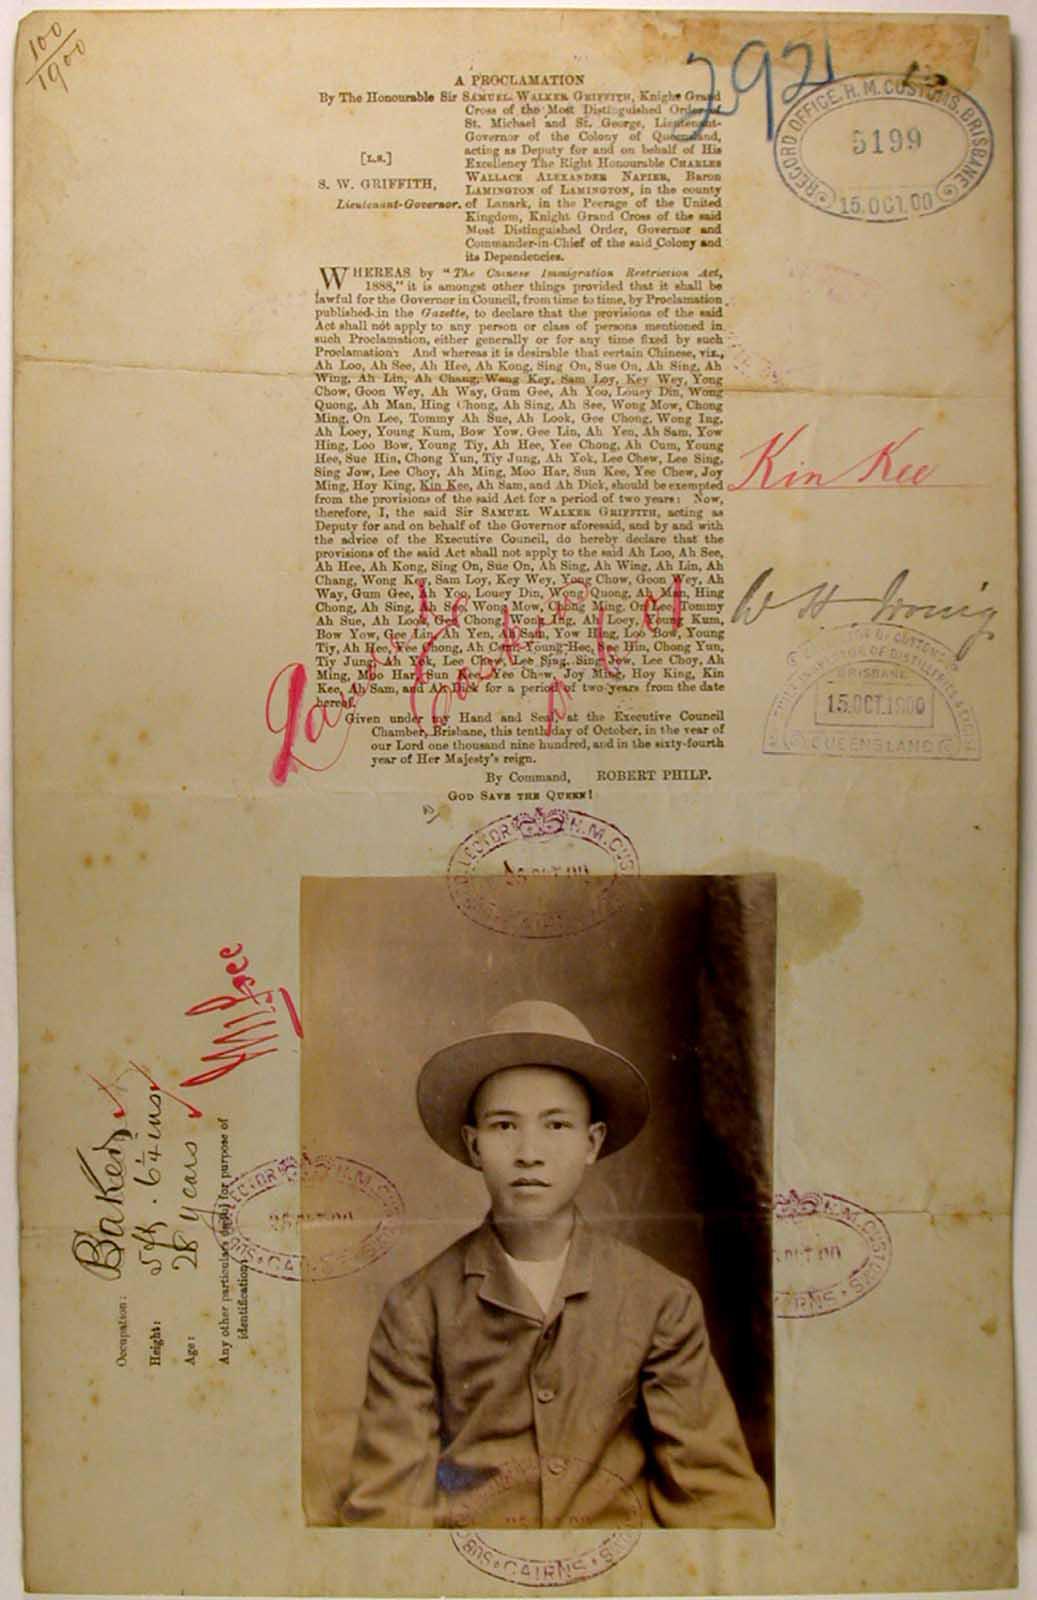 100
1900
2921
RECORD OFFICE. H. M. CUSTOMS. BRISBANE
5199
15.OCT.00
A PROCLAMATION
By The Honourable Sir SAMUEL WALKER GRIFFITH, Knight Grand
Cross of the Most Distinguished Order of
St. Michael and St. George, Lieutenant-
Governor of the Colony of Queensland,
acting as Deputy for and on behalf of His
[L.S.]
Excellency The Right Honourable CHARLES
WALLACE ALEXANDER NAPIER, Baron
S. W. GRIFFITH,
LAMINGTON of LAMINGTON, in the county
Lieutenant-Governor.
of Lanark, in the Peerage of the United
Kingdom, Knight Grand Cross of the said
Most Distinguished Order, Governor and
Commander-in-Chief of the said Colony and
its Dependencies.
WHEREAS by "The Chinese Immigration Restriction Act,
1888," it is amongst other things provided that it shall be
lawful for the Governor in Council, from time to time, by Proclamation
published in the Gazette, to declare that the provisions of the said
Act shall not apply to any person or class of persons mentioned in
such Proclamation, either generally or for any time fixed by such
Proclamation: And whereas it is desirable that certain Chinese, viz.,
Ah Loo, Ah See, Ah Hee, Ah Kong, Sing On, Sue On, Ah Sing, Ah
Wing, Ah Lin, Ah Chang, Wong Key, Sam Loy, Key Wey, Yong
Chow, Goon Wey, Ah Way, Gum Gee, Ah Yoo, Louey Din, Wong
Quong, Ah Man, Hing Chong, Ah Sing, Ah See, Wong Mow, Chong
Ming, On Lee, Tommy Ah Sue, Ah Look, Gee Chong, Wong Ing,
Ah Loey, Young Kum, Bow Yow, Gee Lin, Ah Yen, Ah Sam, Yow
Hing, Loo Bow, Young Tiy, Ah Hee, Yee Chong, Ah Cum, Young
Hee, Sue Hin, Chong Yun, Tiy Jung, Ah Yok, Lee Chew, Lee Sing,
Sing Jow, Lee Choy, Ah Ming, Moo Har, Sun Kee, Yee Chew, Joy
Ming, Hoy King, Kin Kee, Ah Sam, and Ah Dick, should be exempted
from the provisions of the said Act for a period of two years: Now,
therefore, I, the said Sir SAMUEL WALKER GRIFFITH, acting as
Deputy for and on behalf of the Governor aforesaid, and by and with
the advice of the Executive Council, do hereby declare that the
provisions of the said Act shall not apply to the said Ah Loo, Ah See,
Ah Hee, Ah Kong, Sing On, Sue On, Ah Sing, Ah Wing, Ah Lin, Ah
Chang, Wong Key, Sam Loy, Key Wey, Yong Chow, Goon Wey, Ah
Way, Gum Gee, Ah Yoo, Louey Din, Wong Quong, Ah Man, Hing
Chong, Ah Sing, Ah See, Wong Mow, Chong Ming, On Lee, Tommy
Ah Sue, Ah Look, Gee Chong, Wong Ing, Ah Loey, Young Kum,
Bow Yow, Gee Lin, Ah Yen, Ah Sam, Yow Hing, Loo Bow, Young
Tiy, Ah Hee, Yee Chong, Ah Cum, Young Hee, Sue Hin, Chong Yun,
Tiy Jung, Ah Yok, Lee Chew, Lee Sing, Sing Jow, Lee Choy, Ah
Ming, Moo Har, Sun Kee, Yee Chew, Joy Ming, Hoy King, Kin
Kee, Ah Sam, and Ah Dick for a period of two years from the date
hereof.
Given under my Hand and Seal, at the Executive Council
Chamber, Brisbane, this tenth day of October, in the year of
our Lord one thousand nine hundred, and in the sixty-fourth
year of Her Majesty's reign.
By Command, ROBERT PHILP.
GOD SAVE THE QUEEN!
Kin Kee
BRISBANE
15.OCT.1900
QUEENSLAND
COLLECTOR H.M. CUS
OCT 00
CAIRNS
Occupation: Baker
Height: 5ft. 6¼ ins
Age: 28 years
Any other particulars useful for purpose of
identification:
H.M. CUS
OCT 00
CAIRNS
H.M. CUSTOMS
OCT 00
CAIRNS
CAIRNS